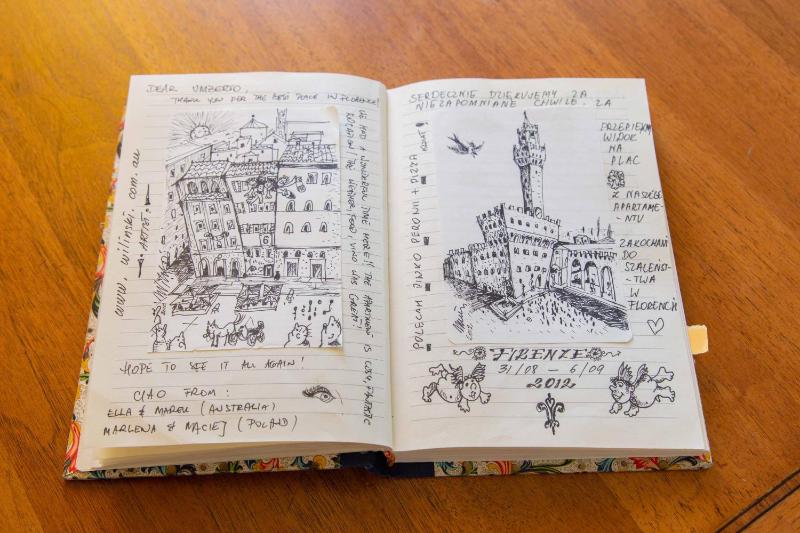 DEAR UMBERTO,
THANK YOU PER THE BEST PLACE IN FLORENCE!
WE HAD A WONDERFUL TIME HERE!! THE APARTMENT IS COSY, FANTASTIC
LOCATION THE WEATHER FOOD VINO WAS GREAT!
www.wilinski.com.au
ARTIST
HOPE TO SEE IT ALL AGAIN!
CIAO FROM:
ELLA & MAREK (AUSTRALIA)
MARLENA & MACIEJ (POLAND)
SERDECZNIE DZIĘKUJEMY ZA
NIEZAPOMNIANE CHWILE. ZA
PRZEPIĘKNY
WIDOK
NA
PLAC
Z NASZEGO
APARTAME-
-NTU
ZAKOCHANI
DO
SZALEŃS-
-TWA
W
FLORENCJI
POLECAM PIWKO PERONI + PIZZA
2012
FIRENZE
31/08 - 6/09
2012